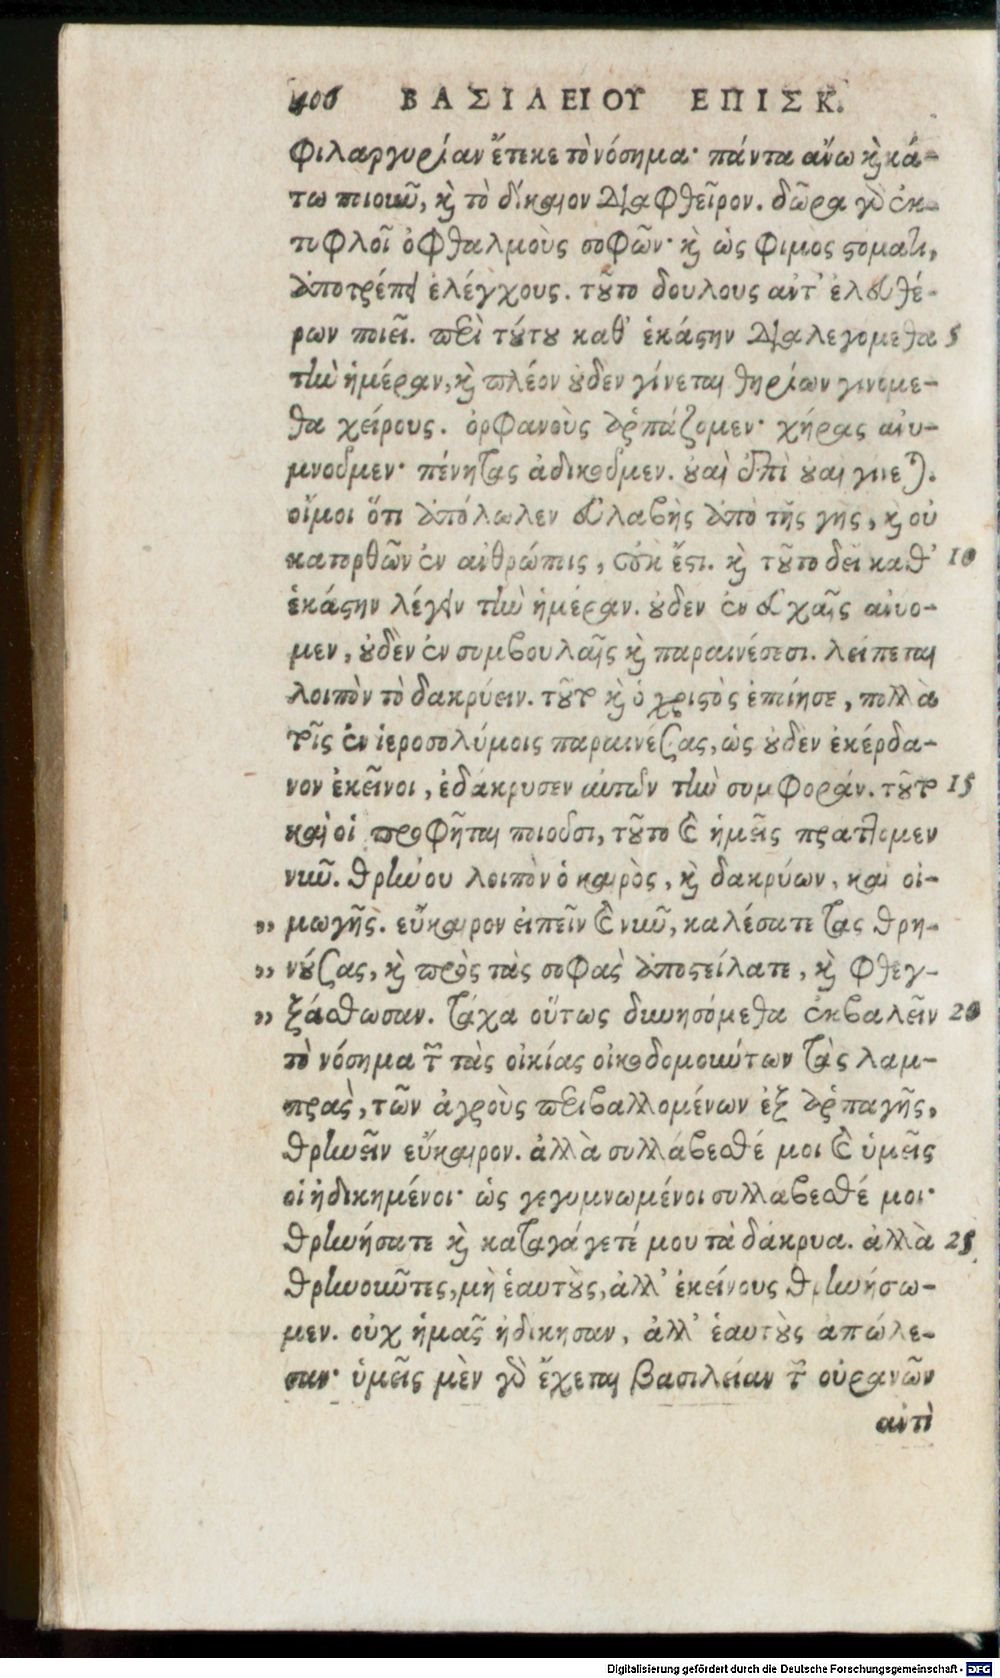 406 ΒΑΣΙΛΕΙΟΥ ΕΠΙΣΚ.
φιλαργυρίαν ἔτεκε τὸ νόσημα· πάντα ἄνω καὶ κά-
τω ποιοῦν, καὶ τὸ δίκαιον διαφθεῖρον. δῶρα γὰρ ἐκ-
τυφλοῖ ὀφθαλμοὺς σοφῶν· καὶ ὡς φιμος στοματι,
ἀποτρέπει ἐλέγχους. τοῦτο δουλους ἀντ' ἐλευθέ-
ρων ποιεῖ. περὶ τούτου καθ' ἑκάστην διαλεγομεθα 5
τὴν ἡμέραν, καὶ πλέον οὐδεν γίνεται θηρίων γινομε-
θα χείρους. ὀρφανοὺς ἁρπάζομεν· χήρας ἀπυ-
μνοῦμεν· πένητας ἀδικοῦμεν. οὐαὶ ἐπὶ οὐαι γίνεται.
οἴμοι ὅτι ἀπόλωλεν εὐλαβὴς ἀπὸ τῆς γῆς, καὶ οὐ
κατορθῶν ἐν ἀνθρώποις, οὐκ ἔστι. καὶ τοῦτο δεῖ καθ' 10
ἑκάστην λέγειν τὴν ἡμέραν. οὐδεν ἐν εὐχαῖς ἀνυο-
μεν, οὐδὲν ἐν συμβουλαῖς καὶ παραινέσεσι. λείπεται
λοιπὸν τὸ δακρύειν. τοῦτο καὶ ὁ χριστὸς ἐποίησε, πολλὰ
τοῖς ἐν ἱεροσολύμοις παραινέσας, ὡς οὐδὲν ἐκέρδα-
νον ἐκεῖνοι, ἐδάκρυσεν αὐτῶν τὴν συμφοράν. τοῦτο 15
καὶ οἱ προφῆται ποιοῦσι, τοῦτο καὶ ἡμεῖς πράττομεν
νῦν. θρήνου λοιπὸν ὁ καιρὸς, καὶ δακρύων, καὶ οἰ-
„ μωγῆς. εὔκαιρον εἰπεῖν καὶ νῦν, καλέσατε τας θρη-
„ νούσας, καὶ πρὸς τὰς σοφὰς ἀποστείλατε, καὶ φθεγ-
„ ξάσθωσαν. τάχα οὕτως δυνησόμεθα ἐκβαλεῖν 20
τὸ νόσημα τῶν τὰς οἰκίας οἰκοδομούντων τὰς λαμ-
πρὰς, τῶν ἀγροὺς περιβαλλομένων ἐξ ἁρπαγῆς,
θρηνεῖν εὔκαιρον. ἀλλὰ συλλάβεσθέ μοι καὶ ὑμεῖς
οἱ ἠδικημένοι· ὡς γεγυμνωμένοι συλλαβεσθέ μοι·
θρηνήσατε καὶ καταγάγετέ μου τὰ δάκρυα. ἀλλὰ 25
θρηνοῦντες, μὴ ἑαυτοὺς, ἀλλ' ἐκείνους θρηνήσω-
μεν. οὐχ ἡμᾶς ἠδίκησαν, ἀλλ' ἑαυτοὺς ἀπώλε-
σαν· ὑμεῖς μὲν γὰρ ἔχεται βασιλείαν τῶν οὐρανῶν
ἀντὶ
Digitalisierung gefördert durch die Deutsche Forschungsgemeinschaft - DFG